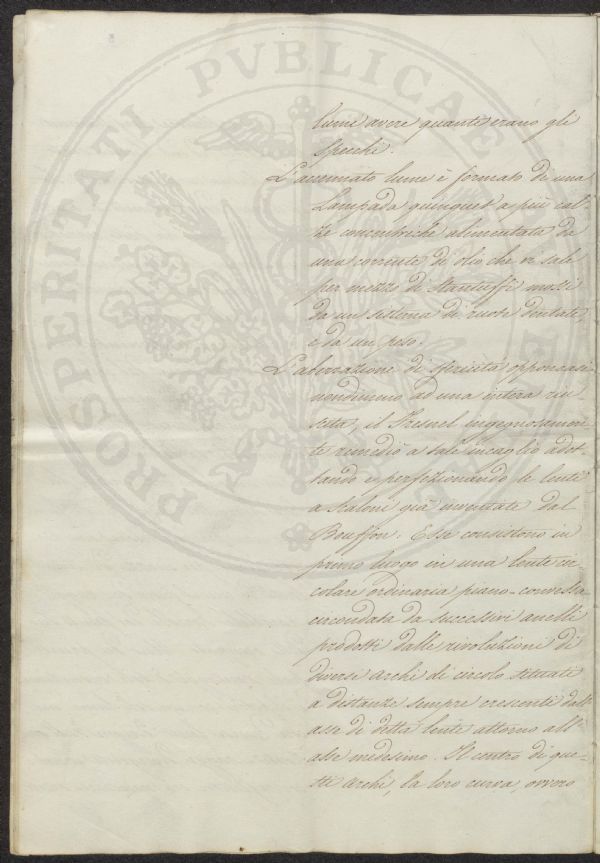 PROSPERITATI PVBLICAE
lumi avere quanti erano gli
specchi.
L'accennato lume è formato di una
Lampada quinquet a più cal-
ze concentriche alimentata da
una corrente di olio che vi sale
per mezzo di Stantuffi mossi
da un sistema di ruote dentate,
e da un peso.
L'aberrazione di sfericità opponeasi
nondimeno ad una intera riu-
scita, il Fresnel ingegnosamen-
te rimediò a tale incaglio adot-
tando e perfezionando le lenti
a scaloni già inventate dal
Bouffon. Esse consistono in
primo luogo in una lente cir-
colare ordinaria piano-convessa
circondata da successivi anelli
prodotti dalle rivoluzioni di
diversi archi di circolo situati
a distanze sempre crescenti dall'
asse di detta lente attorno all'
asse medesimo. Il centro di que-
sti archi, la loro curva, ovvero